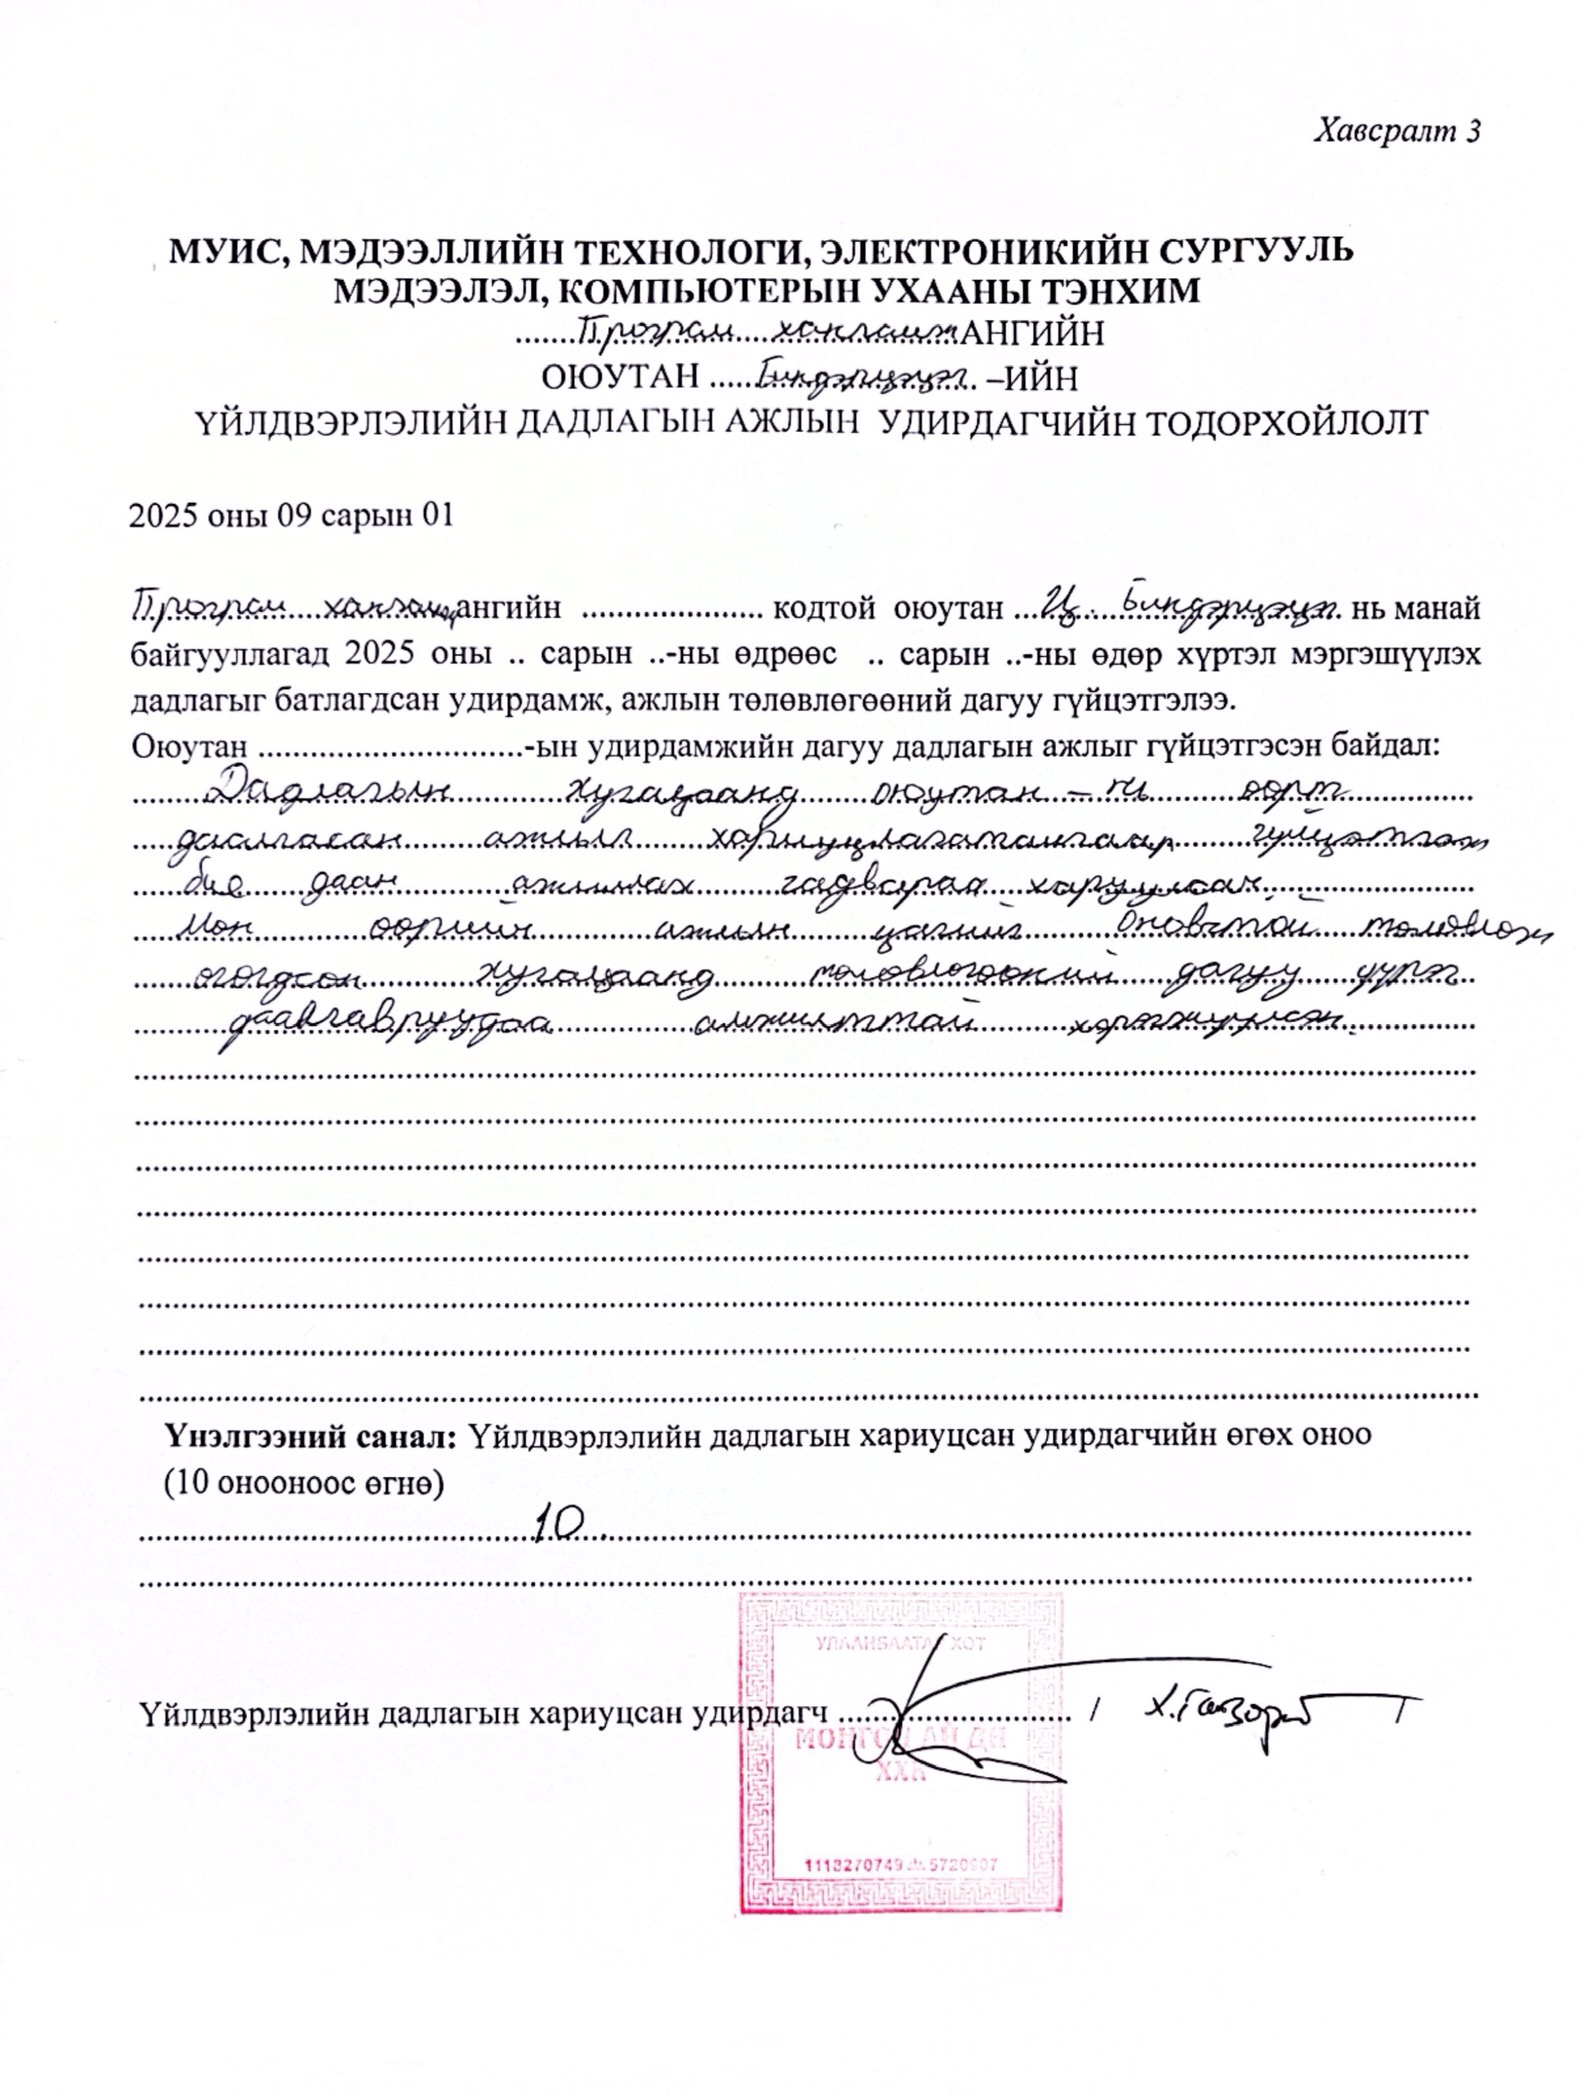 Хавсралт 3
МУИС, МЭДЭЭЛЛИЙН ТЕХНОЛОГИ, ЭЛЕКТРОНИКИЙН СУРГУУЛЬ
МЭДЭЭЛЭЛ, КОМПЬЮТЕРЫН УХААНЫ ТЭНХИМ
.......Програм хангамж АНГИЙН
ОЮУТАН .....Биндэрцэцэг. –ИЙН
ҮЙЛДВЭРЛЭЛИЙН ДАДЛАГЫН АЖЛЫН УДИРДАГЧИЙН ТОДОРХОЙЛОЛТ
2025 оны 09 сарын 01
Програм хангамж ангийн ..................... кодтой оюутан ...Ц. Биндэрцэцэг. нь манай
байгууллагад 2025 оны .. сарын ..-ны өдрөөс .. сарын ..-ны өдөр хүртэл мэргэшүүлэх
дадлагыг батлагдсан удирдамж, ажлын төлөвлөгөөний дагуу гүйцэтгэлээ.
Оюутан ...............................-ын удирдамжийн дагуу дадлагын ажлыг гүйцэтгэсэн байдал:
Дадлагын хугацаанд оюутан - нь өөрт
даалгасан ажлыг хариуцлагатайгаар гүйцэтгэж
бие даан ажиллах чадвараа харуулсан.
Мөн өөрийн ажлын цагийг оновчтой төлөвлөж
өгөгдсөн хугацаанд төлөвлөгөөний дагуу үүрэг
даавгавруудаа амжилттай хэрэгжүүлсэн.
Үнэлгээний санал: Үйлдвэрлэлийн дадлагын хариуцсан удирдагчийн өгөх оноо
(10 онооноос өгнө)
10.
УЛААНБААТАР ХОТ
Үйлдвэрлэлийн дадлагын хариуцсан удирдагч ........................... / Х.Ганзориг /
МОНГОЛ АЙ ДИ
ХХК